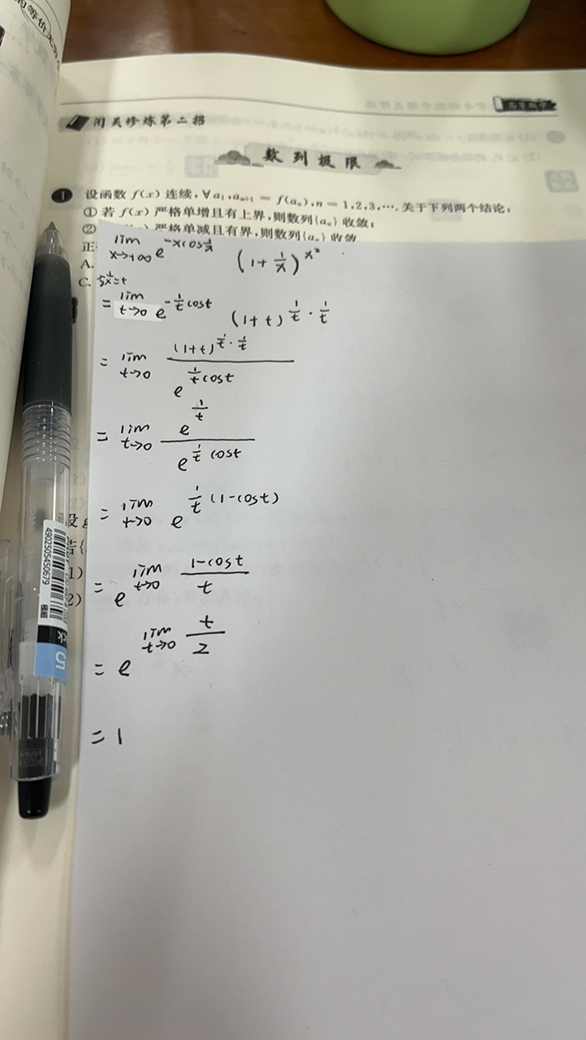 闯关修炼第二招
数列极限
1 设函数 f(x) 连续, ∀a₁, aₙ₊₁ = f(aₙ), n = 1,2,3,…. 关于下列两个结论:
① 若 f(x) 严格单增且有上界, 则数列{aₙ} 收敛;
② 严格单减且有界, 则数列{aₙ} 收敛
正
A.
C.
lim x→+∞ e^(-xcos 1/x) (1+1/x)^(x²)
1/x=t
= lim t→0 e^(-1/t cost) (1+t)^(1/t · 1/t)
= lim t→0 (1+t)^(1/t · 1/t) / e^(1/t cost)
= lim t→0 e^(1/t) / e^(1/t cost)
= lim t→0 e^(1/t (1-cost))
= e^(lim t→0 (1-cost)/t)
= e^(lim t→0 t/2)
= 1
设
1)
2)
4902505450679